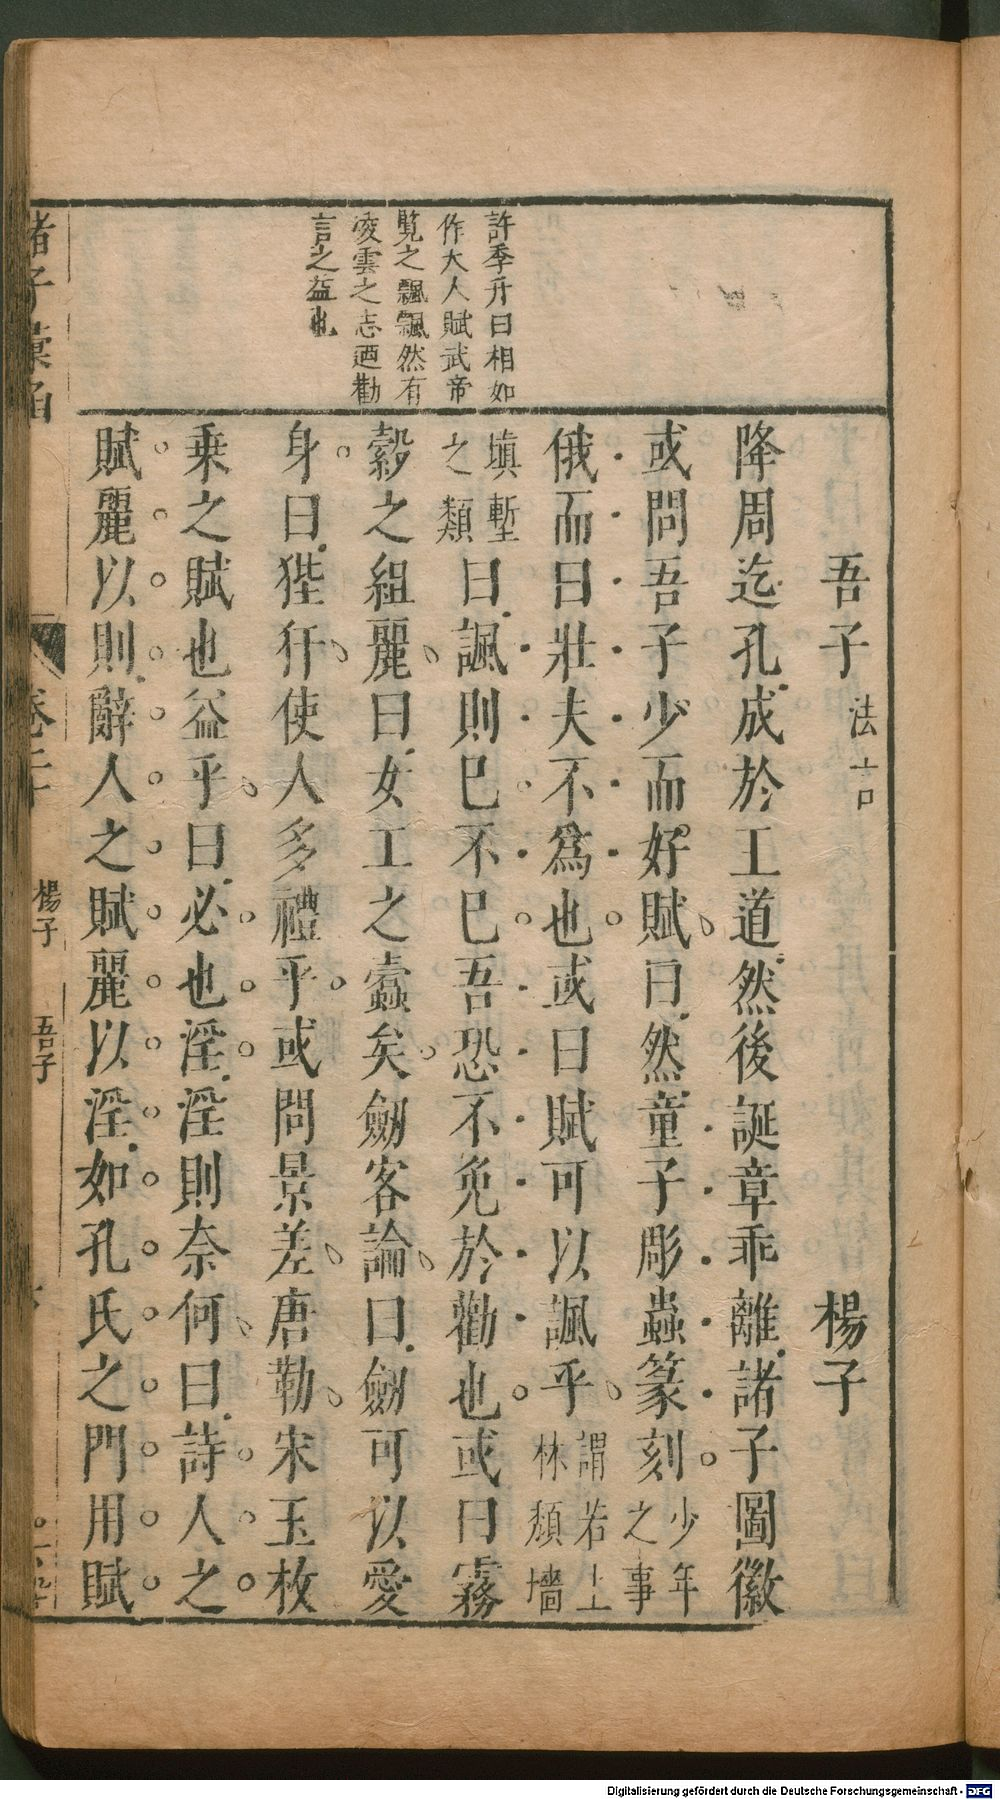 許季升曰相如
作大人賦武帝
覽之飄飄然有
凌雲之志迺勸
言之益也
吾子 法言 楊子
降周迄孔成於王道然後誕章乖離諸子圖徽
或問吾子少而好賦曰然童子彫蟲篆刻 少年之事
俄而曰壯夫不爲也或曰賦可以諷乎 謂若上林頹墻
填塹之類 曰諷則巳不巳吾恐不免於勸也或曰霧
縠之組麗曰女工之蠹矣劒客論曰劒可以愛
身曰狴犴使人多禮乎或問景差唐勒宋玉枚
乗之賦也益乎曰必也淫淫則奈何曰詩人之
賦麗以則辭人之賦麗以淫如孔氏之門用賦
諸子彙函 卷二十 楊子 吾子
Digitalisierung gefördert durch die Deutsche Forschungsgemeinschaft - DFG